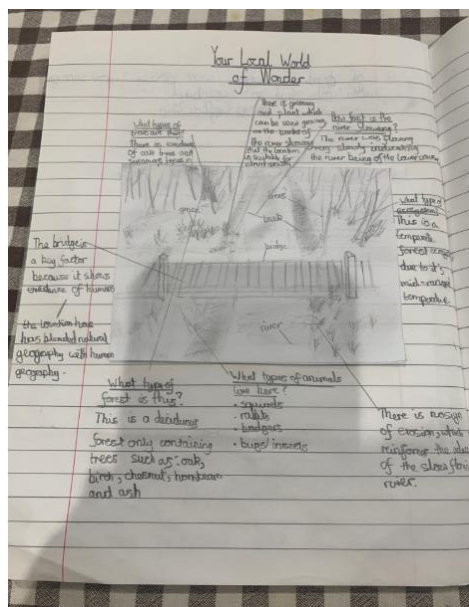 Your Local World
of Wonder
What types of
trees are there?
There is
of oak trees and
There is
and plant which
can be seen growing
on the banks of
the river showing
that the location
is suitable for
plant growth
How fast is the
river flowing?
The river was flowing
very slowly
the river being at the lower course
What type of
ecosystem?
This is a
temperate
forest
due to it's
mid-ranged
temperature.
trees
bank
bridge
river
The bridge is
a key factor
because it shows
evidence of humans
the location has
has blended natural
geography with human
geography.
What type of
forest is this?
This is a
forest only containing
trees such as: oak,
birch, chestnut, hornbeam
and ash
What types of animals
live here?
- squirrels
- rabbits
- badgers
- bugs/insects
There is no sign
of erosion, which
the
of the slow
river.